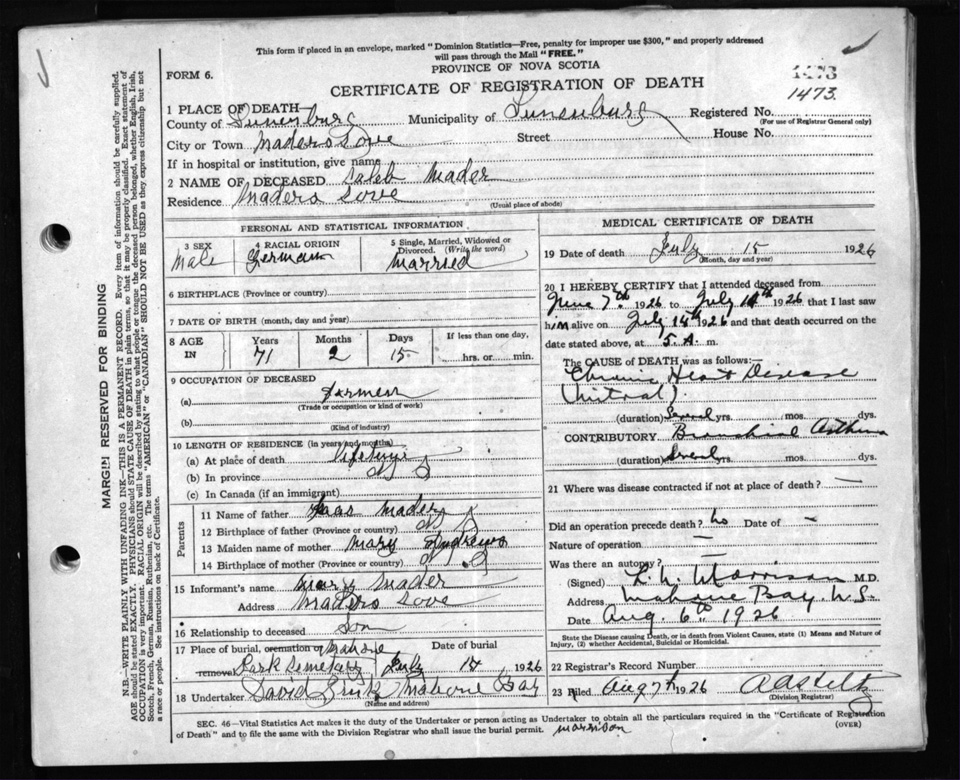 This form if placed in an envelope, marked "Dominion Statistics—Free, penalty for improper use $300," and properly addressed
will pass through the Mail "FREE."
FORM 6.
PROVINCE OF NOVA SCOTIA
CERTIFICATE OF REGISTRATION OF DEATH
1473
1473.
1 PLACE OF DEATH—
County of Lunenburg Municipality of Lunenburg Registered No.
(For use of Registrar General only)
City or Town Maders Cove Street House No.
If in hospital or institution, give name
2 NAME OF DECEASED Caleb Mader
Residence Maders Cove
(Usual place of abode)
PERSONAL AND STATISTICAL INFORMATION
3 SEX 4 RACIAL ORIGIN 5 Single, Married, Widowed or Divorced. (Write the word)
Male German Married
6 BIRTHPLACE (Province or country)
7 DATE OF BIRTH (month, day and year)
8 AGE IN Years Months Days If less than one day,
71 2 15 hrs. or min.
9 OCCUPATION OF DECEASED
(a) Farmer
(Trade or occupation or kind of work)
(b)
(Kind of industry)
10 LENGTH OF RESIDENCE (in years and months)
(a) At place of death
(b) In province
(c) In Canada (if an immigrant)
Parents
11 Name of father Mader
12 Birthplace of father (Province or country)
13 Maiden name of mother Mary Andrews
14 Birthplace of mother (Province or country)
15 Informant's name Mader
Address Maders Cove
16 Relationship to deceased Son
17 Place of burial, cremation or Mahone Date of burial
removal Park Cemetary July 1926
18 Undertaker David Mahone Bay
(Name and address)
MEDICAL CERTIFICATE OF DEATH
19 Date of death July 15 1926
(Month, day and year)
20 I HEREBY CERTIFY that I attended deceased from
June 7th 1926 to July 14th 1926 that I last saw
him alive on July 14th 1926 and that death occurred on
date stated above, at 5. A. m.
The CAUSE OF DEATH was as follows:—
Chronic Heart Disease
(Mitral).
(duration) Several yrs. mos. dys.
CONTRIBUTORY Bronchial Asthma
(duration) Several yrs. mos. dys.
21 Where was disease contracted if not at place of death? —
Did an operation precede death? No Date of —
Nature of operation —
Was there an autopsy? —
(Signed) Morrison M.D.
Address Mahone Bay. N.S.
Date Aug. 6th 1926
State the Disease causing Death, or in death from Violent Causes, state (1) Means and Nature of
Injury, (2) whether Accidental, Suicidal or Homicidal.
22 Registrar's Record Number
23 Filed Aug 7th 1926
(Division Registrar)
SEC. 46—Vital Statistics Act makes it the duty of the Undertaker or person acting as Undertaker to obtain all the particulars required in the "Certificate of Registration
of Death" and to file the same with the Division Registrar who shall issue the burial permit.
(OVER)
Morrison
MARGIN RESERVED FOR BINDING
N.B.—WRITE PLAINLY WITH UNFADING INK—THIS IS A PERMANENT RECORD. Every item of information should be carefully supplied.
AGE should be stated EXACTLY. PHYSICIANS should STATE CAUSE OF DEATH in plain terms, so that it may be properly classified. Exact statement of
OCCUPATION is very important. RACIAL ORIGIN will be described by stating to what people or tongue the deceased person belonged, whether English, Irish,
Scotch, French, German, Russian, Ruthenian, etc. The terms "AMERICAN" or "CANADIAN" SHOULD NOT BE USED as they express citizenship but not
a race or people. See instructions on back of Certificate.